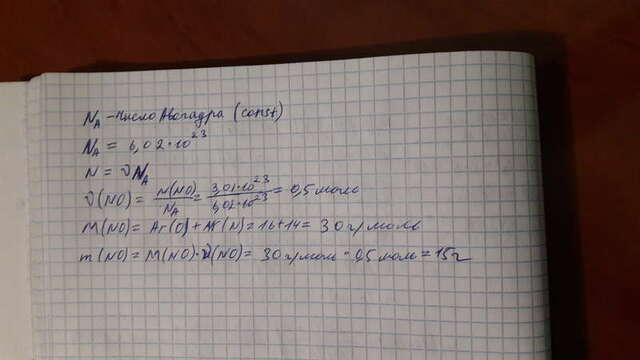 N_A - Число Авогадра (const)
N_A = 6,02 · 10^23
N = νN_A
ν(NO) = N(NO)/N_A = 3,01·10^23/6,02·10^23 = 0,5 моль
M(NO) = Ar(O) + Ar(N) = 16+14 = 30 г/моль
m(NO) = M(NO)·ν(NO) = 30 г/моль · 0,5 моль = 15г